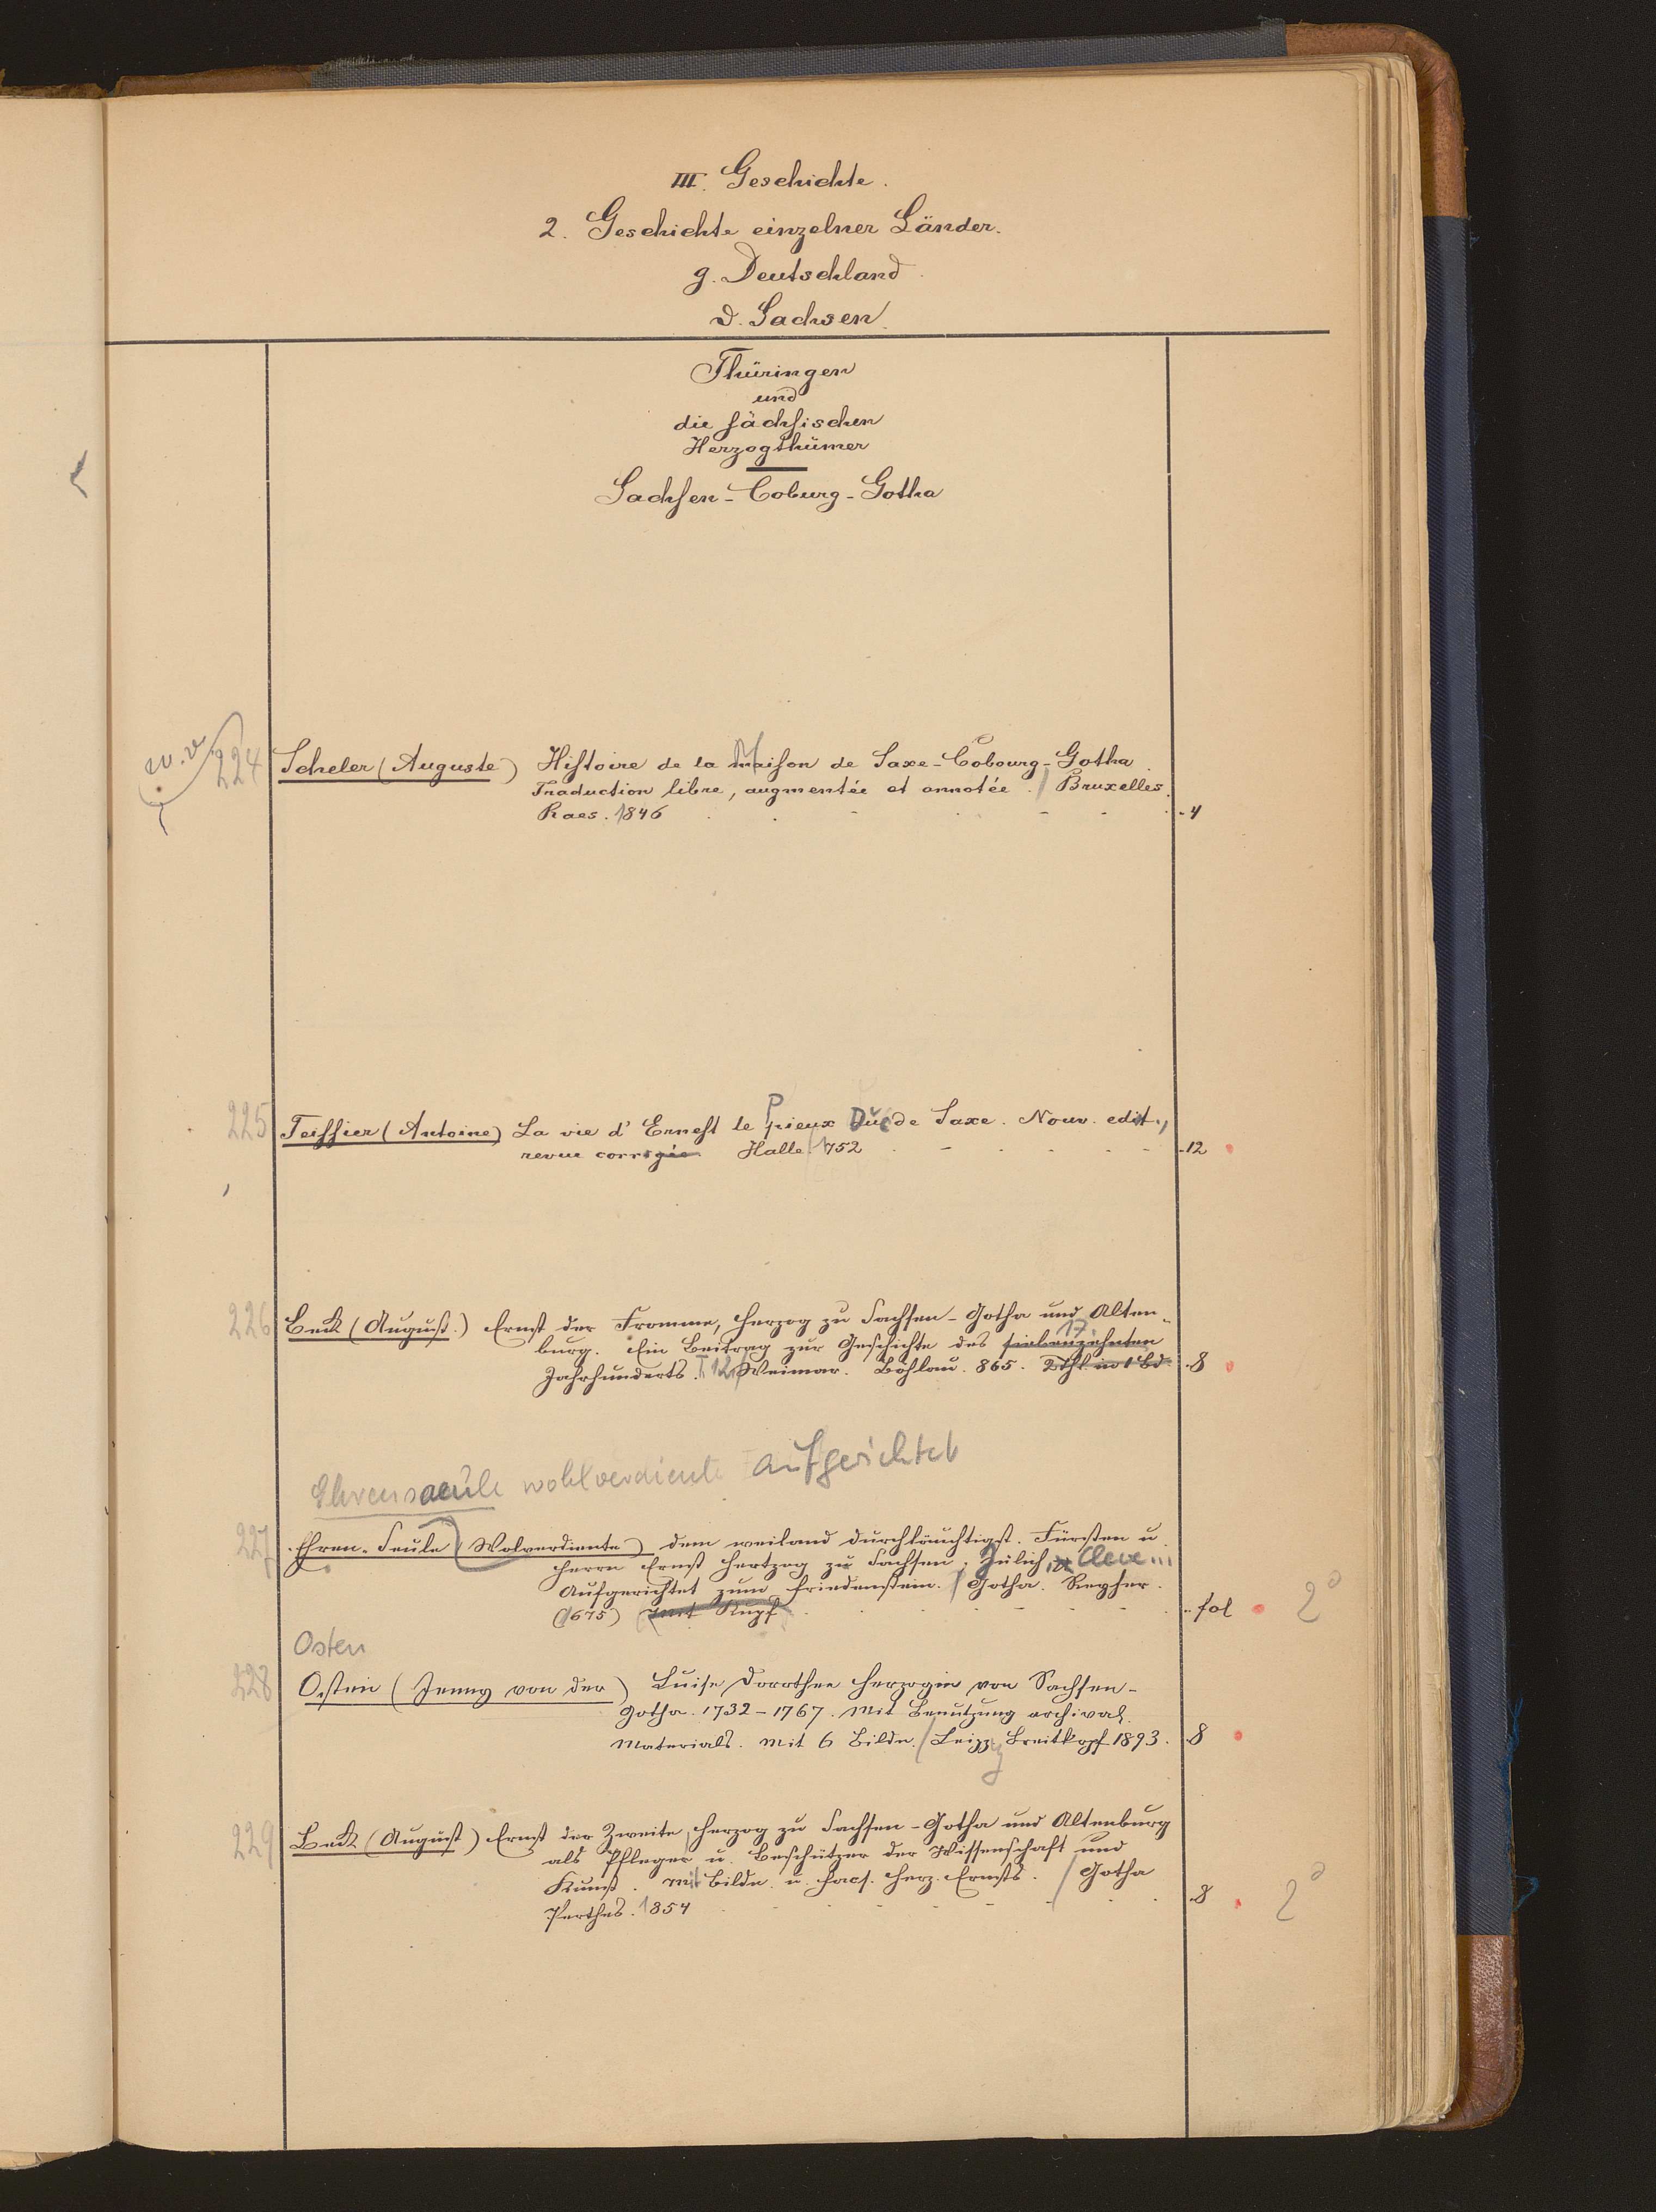 III. Geschichte.
2. Geschichte einzelner Länder.
g. Deutschland.
d. Sachsen.
Thüringen
und
die sächsischen
Herzogthümer
Sachsen-Coburg-Gotha
w.v.
224 Scheler (Auguste) Histoire de la Maison de Saxe-Cobourg-Gotha.
Traduction libre, augmentée et annotée. / Bruxelles.
Raes. 1846 4
225 Teissier (Antoine) La vie d'Ernest le Pieux Duc de Saxe. Nouv. edit.,
revue corrigée. Halle 1752 12
226 Beck (August.) Ernst der Fromme, Herzog zu Sachsen-Gotha und Alten-
burg. Ein Beitrag zur Geschichte des siebenzehnten 17.
Jahrhunderts. I 12 Weimar. Böhlau. 865. 2 Thl. in 1 Bd. 8
Ehrensaeule wohlverdiente aufgerichtet
227 Ehren-Seule (Wolverdiente) dem weiland durchläuchtigst. Fürsten u.
Herrn Ernst Hertzog zu Sachsen, Jülich, Cleve...
Aufgerichtet zum Friedenstein. / Gotha. Reyher.
(1675) mit Kupf. fol 2°
Osten
228 Ostein (Jenny von der) Luise Dorothee Herzogin von Sachsen-
Gotha. 1732-1767. Mit Benutzung archival.
Materials. Mit 6 Bildn. / Leipzig Breitkopf 1893. 8
229 Beck (August) Ernst der Zweite, Herzog zu Sachsen-Gotha und Altenburg
als Pfleger u. Beschützer der Wissenschaft und
Kunst. mit Bildn. u. Facs. Herz. Ernsts. / Gotha
Perthes. 1854 8 2°